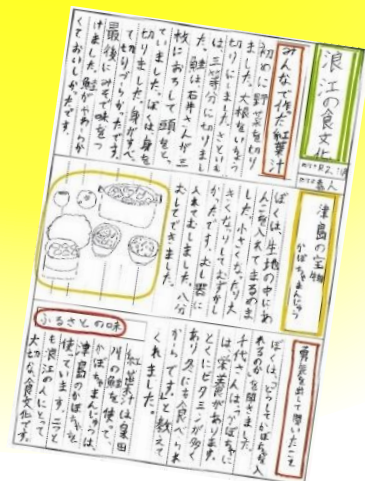 浪江の食文化
みんなで作た紅葉汁
初めに野菜を切り
ました。大根をいちょう
切りにしました。さといも
は三等分に切りまし
た。鮭は石井さんが三
枚におろして頭をと
ていました。ぼくは身を
切りました。身がすべ
て切りづらかたです。
最後にみそで味をつ
けました。鮭がやわらか
くておいしかたです。
津島の宝物
かぼちゃまんじゅう
ぼくは、生地の中にあ
んこを入れてまるめま
した。小さくなたり大
きくなたりしてむずかし
かたです。むし器に
入れてむしました。八分
むしてできました。
勇気を出して聞いたこと
ぼくは、「どうしてかぼちゃを入
れるのか」を聞きました。
千代さんは、「かぼちゃに
は栄養があります。
とくにビタミンが多く
あり、冬にも食べられ
るからです。」と教えて
くれました。
ふるさとの味
紅葉汁は泉田
川の鮭を使て、
かぼちゃまんじゅうは、
津島のかぼちゃを
使ています。二つと
も浪江の人にとて
大切な食文化です。